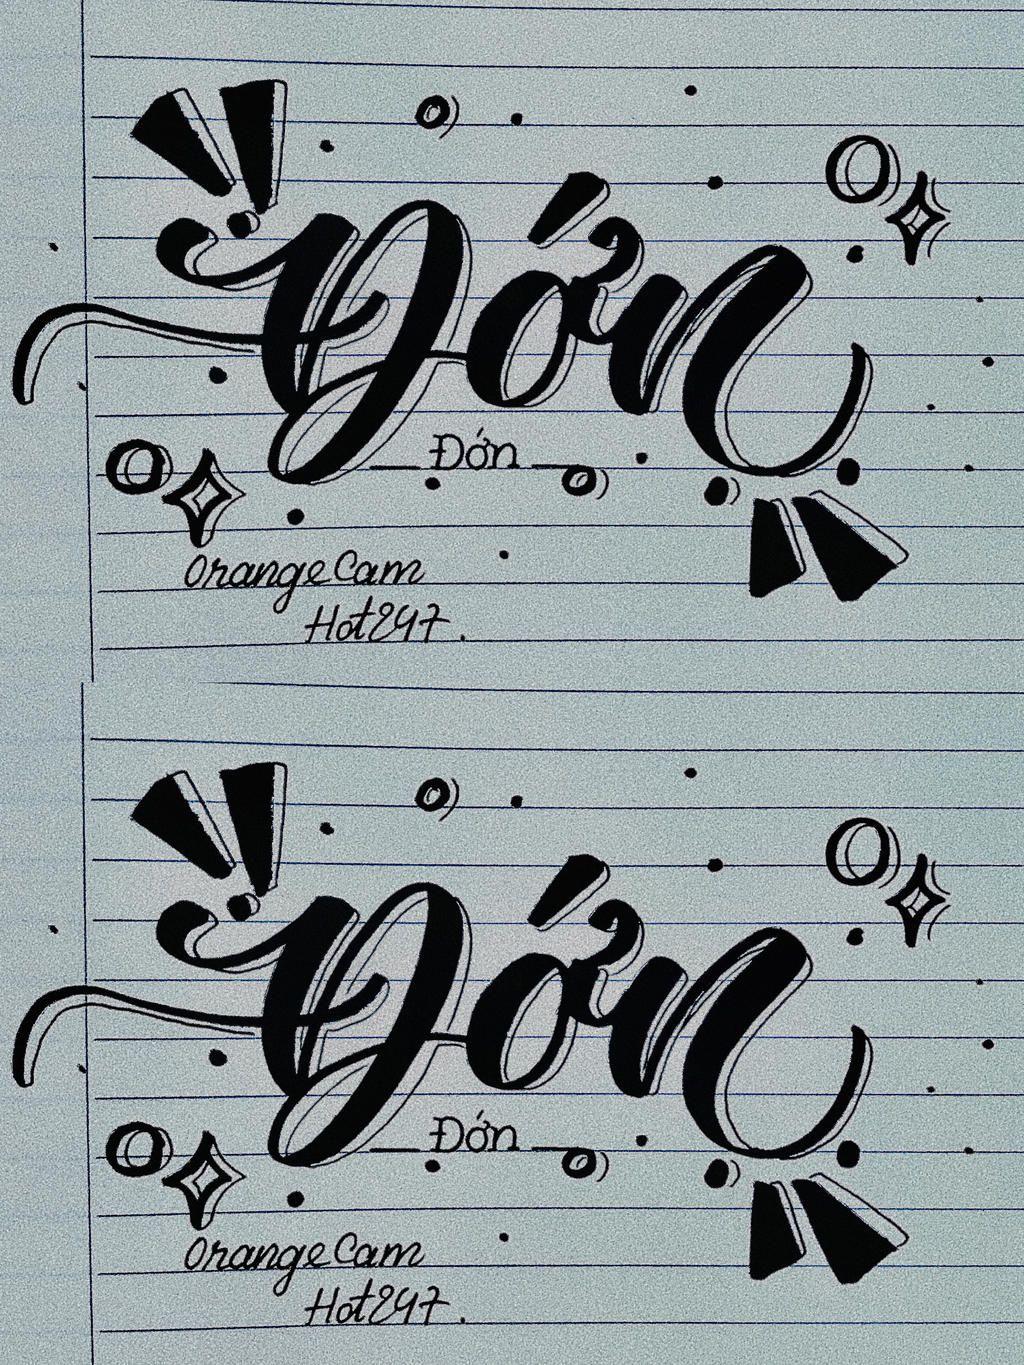 Đớn
Đớn
OrangeCam
Hot247.
Đớn
Đớn
OrangeCam
Hot247.